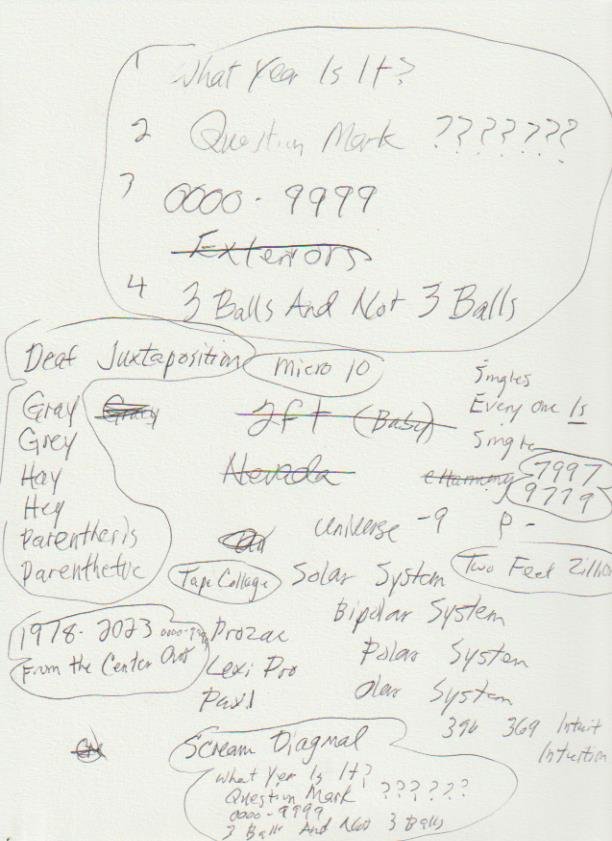 1 What Year Is It?
2 Question Mark ???????
3 0000 - 9999
Exterrors
4 3 Balls And Not 3 Balls
Deaf Juxtaposition
Micro 10
Singles
Every one Is
Single
Gray
Grey
Hay
Hey
Parenthesis
Parenthetic
2ft (Baby)
Nevada
eHarmony
7997
9779
Universe -9 P -
Tape Collage
Solar System
Two Feet Zillion
Bipolar System
Polar System
Olar System
1978 - 2023
From the Center Out
Prozac
Lexi Pro
Paxil
396 369 Intuit
Intuition
Scream Diagmal
What Year Is It?
Question Mark ??????
0000 - 9999
3 Balls And Not 3 Balls